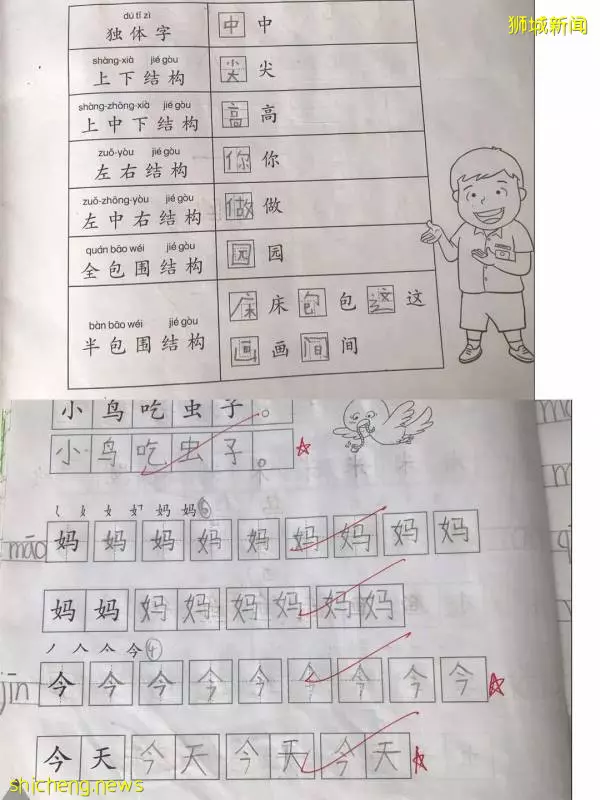 狮城新闻
dú tǐ zì
独体字 中 中
shàng-xià jié gòu
上下结构 尖 尖
shàng-zhōng-xià jié gòu
上中下结构 高 高
zuǒ-yòu jié gòu
左右结构 你 你
zuǒ-zhōng-yòu jié gòu
左中右结构 做 做
quán bāo wéi jié gòu
全包围结构 园 园
bàn bāo wéi jié gòu
半包围结构 床 床 包 包 这 这
画 画 间 间
小鸟吃虫子。
小鸟吃虫子。
妈 妈 6
妈 妈 妈 妈 妈 妈 妈 妈 妈
妈妈 妈妈 妈妈 妈妈
今 4
jīn 今 今 今 今 今 今 今 今 今
今天 今天 今天 今天
shicheng.news